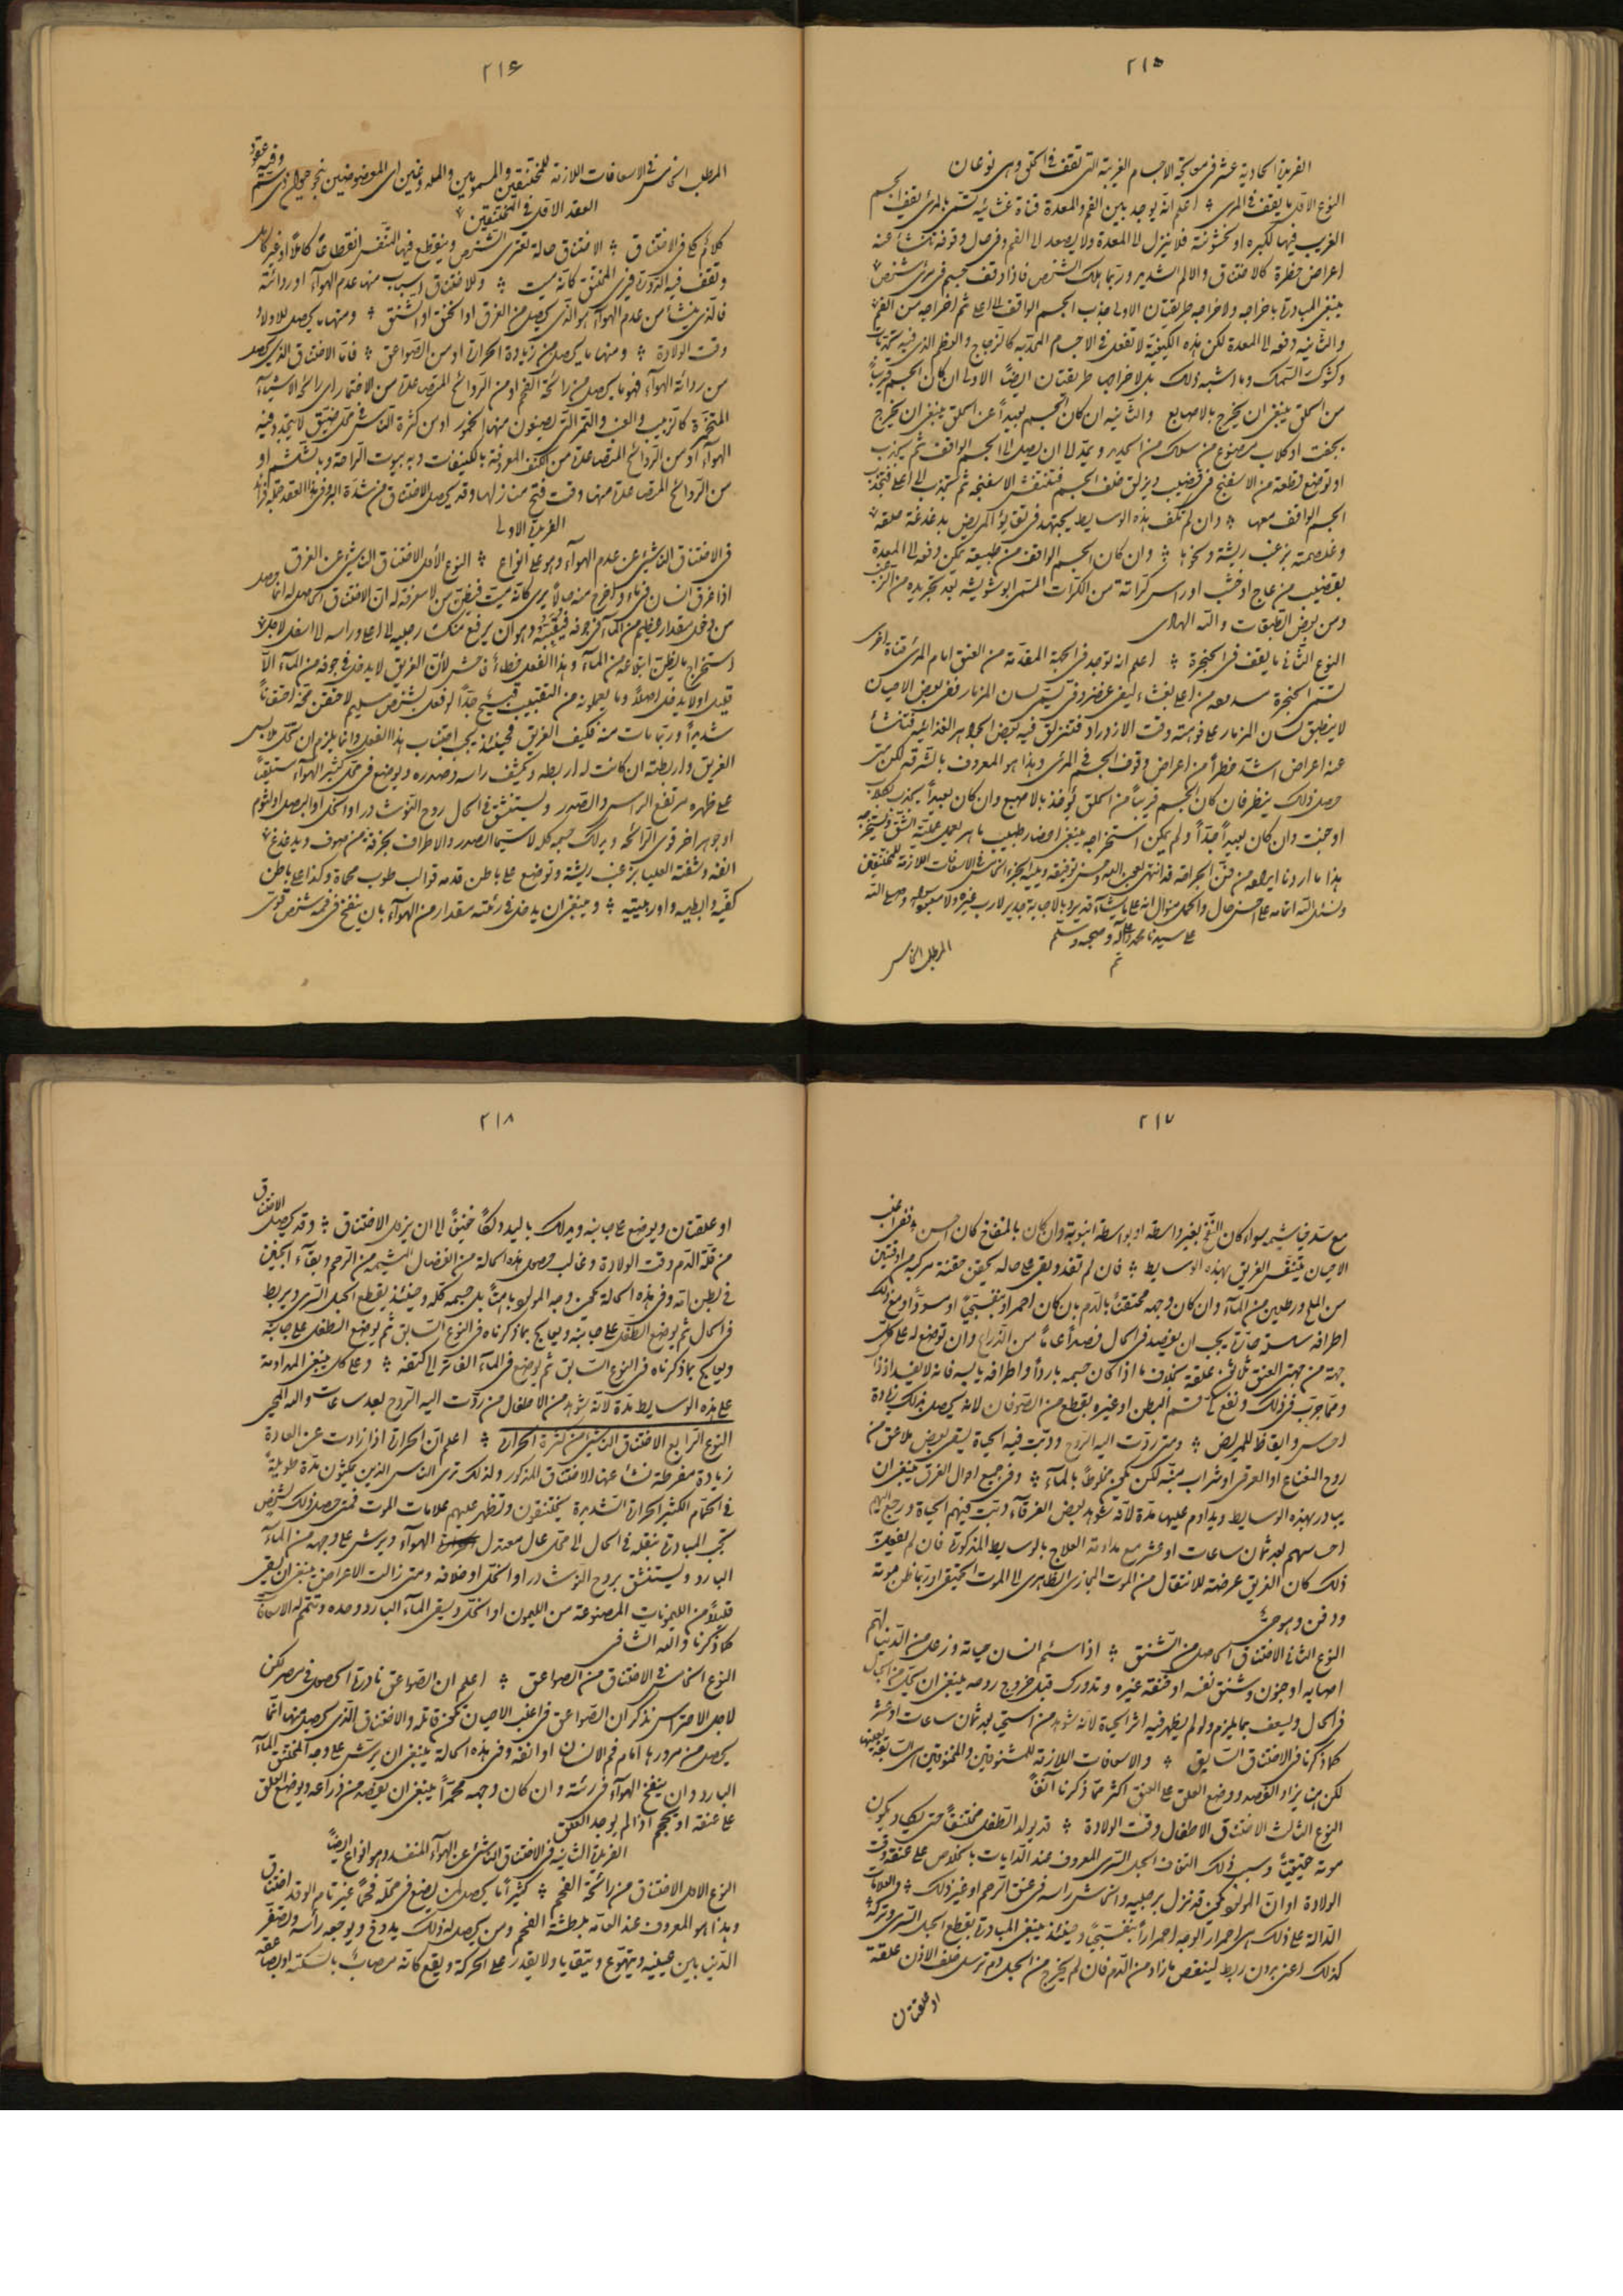 ٢١٥
الفريدة الحادية عشر فى معالجة الاجسام الغريبة التى تقف فى الحلق وهى نوعان
النوع الاول ما يقف فى المرى اعلم انه يوجد بين الفم والمعدة قناة غشائية تسمى بالمرى يقف الجسم
الغريب فيها لكبره او لخشونته فلا ينزل الى المعدة ولا يصعد الى الفم وفى حال وقوفه تنشأ عنه
اعراض خطرة كالاختناق والالم الشديد وربما هلك الشخص فاذا وقف جسم فى مرئ شخص
ينبغى المبادرة باخراجه ولاخراجه طريقتان الاولى جذب الجسم الواقف الى اعلى ثم اخراجه من الفم
والثانية دفعه الى المعدة لكن هذه الكيفية لا تفعل فى الاجسام المحدبة كالزجاج والعظم الذى فيه
وكشوك السمك وما اشبه ذلك بل لاخراجها طريقتان ايضا الاولى ان كان الجسم قريبا
من الحلق ينبغى ان يخرج بالاصابع والثانية ان كان الجسم بعيدا عن الحلق ينبغى ان يخرج
بجفت او كلاب مصنوع من سلك من الحديد ويمد الى ان يصل الى الجسم الواقف ثم يجذب
او توضع قطعة من الاسفنج فى قضيب ويزلق خلف الجسم فتنتفش الاسفنجة ثم تجذب الى اعلى فتجذب
الجسم الواقف معها وان لم تكف هذه الوسايط يجتهد فى تقايؤ المريض بدغدغة حلقه
وغلصمته بزغب ريشة ونحوها وان كان الجسم الواقف من طبيعته يمكن دفعه الى المعدة
بقضيب من عاج او خشب او راس كراثة من الكراث المسمى ابو شويشة بعد تجريده من الزغب
ومن بعض الطبقات والله الهادى
النوع الثانى ما يقف فى الحنجرة اعلم انه توجد فى الجهة المقدمة من العنق امام المرى قناة اخرى
تسمى الحنجرة من اعلى بغشاء ليفى غضروفى يسمى لسان المزمار ففى بعض الاحيان
لا ينطبق لسان المزمار على فوهته وقت الازدراد فتنزلق فيه بعض الجواهر الغذائية فتنشأ
عنه اعراض اشد خطرا من اعراض وقوف الجسم فى المرى وهذا هو المعروف بالشرقة لكن متى
حصل ذلك ينظر فان كان الجسم قريبا من الحلق يؤخذ بالاصبع وان كان بعيدا يجذب بكلاب
او جفت وان كان بعيدا جدا ولم يمكن استخراجه ينبغى احضار طبيب ماهر يعمل عملية الشق ويستخرجه
هذا ما اردنا ايراده من فن الجراحة قد انتهى بعون الله وحسن توفيقه ويليه الجزء الخامس فى الاسعافات اللازمة للمختنقين
ونسئل الله اتمامه على احسن حال والحمد منوال انه على ما يشآء قدير وبالاجابة جدير لا رب غيره ولا معبود سواه وصلى الله
على سيدنا محمد وعلى آله وصحبه وسلم
تم
المطلب الخامس
٢١٦
المطلب الخامس فى الاسعافات اللازمة للمختنقين والمسمومين والملدوغين اى المعضوضين بنحو حيوان ذى سم وفيه عقود
العقد الاول فى المختنقين
كلام كلى فى الاختناق الاختناق حالة تعترى الشخص وينقطع فيها التنفس انقطاعا كاملا او غير كامل
وتقف فيه الدورة فيرى المختنق كانه ميت وللاختناق اسباب منها عدم الهوآء او ردائته
فالذى ينشأ من عدم الهوآء هو الذى يحصل من الغرق او الخنق او الشنق ومنها ما يحصل للاولاد
وقت الولادة ومنها ما يحصل من زيادة الحرارة او من الصواعق فاما الاختناق الذى يحصل
من ردائة الهوآء فهو ما يحصل من رائحة الفحم او من الروائح المتصاعدة من الاختمار اى رائحة الاشيآء
المتخمرة كالزبيب والعنب والتمر التى يصنعون منها الخمور او من كثرة الناس فى محل ضيق لا يتجدد فيه
الهوآء او من الروائح المتصاعدة من الكنف المعروفة بالكنيفات وبه بيوت الراحة وبالششم او
من الروائح المتصاعدة منها وقت فتح منازلها وقد يحصل الاختناق من شدة البرد فى هذا العقد جملة فرائد
الفريدة الاولى
فى الاختناق الناشئ عن عدم الهوآء وهو على انواع النوع الاول الاختناق الناشئ عن الغرق
اذا غرق انسان فى ماء واخرج منه حالا يرى كانه ميت فيظن من لا معرفة له ان الاختناق الحاصل له انما حصل
من دخول مقدار عظيم من المآء فى جوفه فيقببه وهو ان يرفع منكسا رجليه الى اعلى وراسه الى اسفل لاجل
استخراج ما يظن ابتلاعه من المآء وهذا الفعل خطأ فاحش لان الغريق لا يدخل فى جوفه من المآء الا
قليل اولا يدخل اصلا وما يعملونه من التقبيب قبيح جدا لو فعل بشخص سليم لاحتقن مخه احتقانا
شديدا وربما مات منه فكيف الغريق فحينئذ يجب اجتناب هذا الفعل وانما يلزم ان تحل ملابس
الغريق واربطته ان كانت له اربطة ويكشف راسه وصدره ويوضع فى محل كثير الهوآء مستلقيا
على ظهره مرتفع الراس والصدر ويستنشق فى الحال روح النوشادر او الخل او البصل او الثوم
او جوهر اخر قوى الرائحة ويدلك جسمه كله لا سيما الصدر والاطراف بخرقة من صوف ويدغدغ
انفه وشفته العليا بزغب ريشة وتوضع على باطن قدمه قوالب طوب محماة وكذا على باطن
كفيه وابطيه واوربيتيه وينبغى ان يدخل فى رئته مقدار من الهوآء بان ينفخ فى فمه شخص قوى
٢١٧
مع سد خياشيمه سواء كان النفخ بغير واسطة او بواسطة انبوبة وان كان بالمنفاخ كان احسن ففى اغلب
الاحيان يتنفس الغريق بهذه الوسايط فان لم تفد وبقى على حاله يحقن حقنة مركبة من اوقيتين
من الملح ورطلين من المآء وان كان وجهه محتقنا بالدم بان كان احمر او بنفسجيا او مسودا ومع ذلك
اطرافه حارة يجب ان يفصد فى الحال فصدا عاما من الذراع وان توضع له على كل
جهة من جهتى العنق ثلاثين علقة بخلاف ما اذا كان جسمه باردا واطرافه يابسة فانه لا يفيد اذا
ومما جرب فى ذلك ونفع كى قسم البطن او غيره بقطع من الصوفان لانه يحصل بذلك زيادة
احساس وايقاظ للمريض ومتى ردت اليه الروح ودبت فيه الحياة يسقى بعض ملاعق من
روح النعناع او العرقى او شراب منبه لكن يكون مخلوطا بالمآء وفى جميع احوال الغرق ينبغى ان
يبادر بهذه الوسايط ويداوم عليها مدة لانه شوهد بعض الغرقآء دبت فيهم الحياة ورجع اليهم
احساسهم بعد ثمان ساعات او عشر مع مداومة العلاج بالوسايط المذكورة فان لم يفعل
ذلك كان الغريق عرضة للانتقال من الموت المجازى الظاهرى الى الموت الحقيقى وربما ظن موته
ودفن وهو حى
النوع الثانى الاختناق الحاصل من الشنق اذا سئم انسان حياته وزهد من الدنيا لهم
اصابه او جنون وشنق نفسه او خنقه غيره وتدورك قبل خروج روحه ينبغى ان يحل من الحبال
فى الحال ويسعف بما يلزم ولو لم يظهر فيه اثر الحياة لانه شوهد من استحيى بعد ثمان ساعات او عشر
كما ذكرنا فى الاختناق السابق والاسعافات اللازمة للمشنوقين والمخنوقين هى السابقة بعينها
لكن هنا يزاد الفصد ووضع العلق على العنق اكثر مما ذكرنا آنفا
النوع الثالث الاختناق الاطفال وقت الولادة قد يولد الطفل مختنقا حتى يكاد يكون
موته حقيقيا وسبب ذلك التفاف الحبل السرى المعروف عند الدايات بالخلاص على عنقه وقت
الولادة او ان المولود يمكن قد نزل برجليه وانحاش راسه فى عنق الرحم او غير ذلك والعلامات
الدالة على ذلك هى احمرار الوجه احمرارا بنفسجيا وحينئذ ينبغى المبادرة بقطع الحبل السرى وتركه
كذلك اعنى بدون ربط لينقص ما زاد من الدم فان لم يخرج من الحبل دم ترسل خلف الاذن علقة
او علقتان
٢١٨
او علقتان ويوضع على جانبه ويدلك باليد دلكا خفيفا الى ان يزول الاختناق وقد يحصل الاختناق
من قلة الدم وقت الولادة وغالب حصول هذه الحالة من انفصال المشيمة من الرحم وبقآء الجنين
فى بطن امه وفى هذه الحالة يكون وجه المولود باهتا بل جسمه كله وحينئذ يقطع الحبل السرى ويربط
فى الحال ثم يوضع الطفل على جانبه ويعالج بما ذكرناه فى النوع السابق ثم يوضع الطفل على جانبه
ويعالج بما ذكرناه فى النوع السابق ثم يوضع فى المآء الفاتر الى كتفه وعلى كل ينبغى المداومة
على هذه الوسايط مدة لانه شوهد من الاطفال من ردت اليه الروح بعد ساعات والله المحيى
النوع الرابع الاختناق الناشئ من كثرة الحرارة اعلم ان الحرارة اذا زادت عن العادة
زيادة مفرطة نشأ عنها الاختناق المذكور ولذلك ترى الناس الذين يمكثون مدة طويلة
فى الحمام الكثير الحرارة الشديدة يختنقون وتظهر عليهم علامات الموت فمتى حصل ذلك لشخص
تجب المبادرة بنقله فى الحال الى محل عال معتدل الهوآء ويرش على وجهه من المآء
البارد ويستنشق بروح النوشادر او الخل او خلافه ومتى زالت الاعراض ينبغى ان يسقى
قليلا من الليمونات المصنوعة من الليمون او الخل ويسقى المآء البارد وحده وتتمم له الاسعافات
كما ذكرنا والله الشافى
النوع الخامس فى الاختناق من الصواعق اعلم ان الصواعق نادرة الحصول فى مصر لكن
لاجل الاحتراس نذكر ان الصواعق فى اغلب الاحيان تكون قاتلة والاختناق الذى يحصل منها انما
يحصل من مرورها امام فم الانسان او انفه وفى هذه الحالة ينبغى ان يرش على وجه المختنق المآء
البارد وان ينفخ الهوآء فى رئته وان كان وجهه محمرا ينبغى ان يفصد من ذراعه ويوضع العلق
على عنقه او يحجم اذا لم يوجد العلق
الفريدة الثانية فى الاختناق الناشئ عن الهوآء المنفسد وهو انواع ايضا
النوع الاول الاختناق من رائحة الفحم كثيرا ما يحصل لمن يضع فى محله فحما غير تام الوقد اختناق
وهذا هو المعروف عند العامة بلطشة الفحم ومن يحصل له ذلك يدوخ ويوجعه رأسه وتصغر
الدنيا بين عينيه ويتهوع ويتقايا ولا يقدر على الحركة ويقع كانه مصاب بالسكتة او بصاعقة